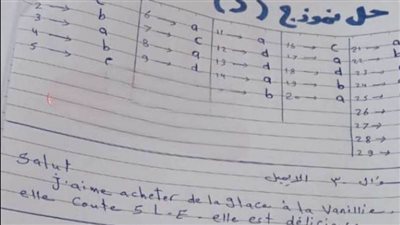 حل نموذج (3)
2 → b
3 → a
4 → b
5 →
6 → a
7 → c
8 → a
9 → d
11 → a
12 → d
13 → d
14 → a
→ b
16 → c
17 → a
18 → d
19 → b
20 → a
21 → a
22 → b
23 → a
24 →
25 →
26 →
27 →
28 →
29 →
سؤال ٣٠ الايميل
Salut
j'aime acheter de la glace à la Vanillie.
elle coute 5 L.E. elle est